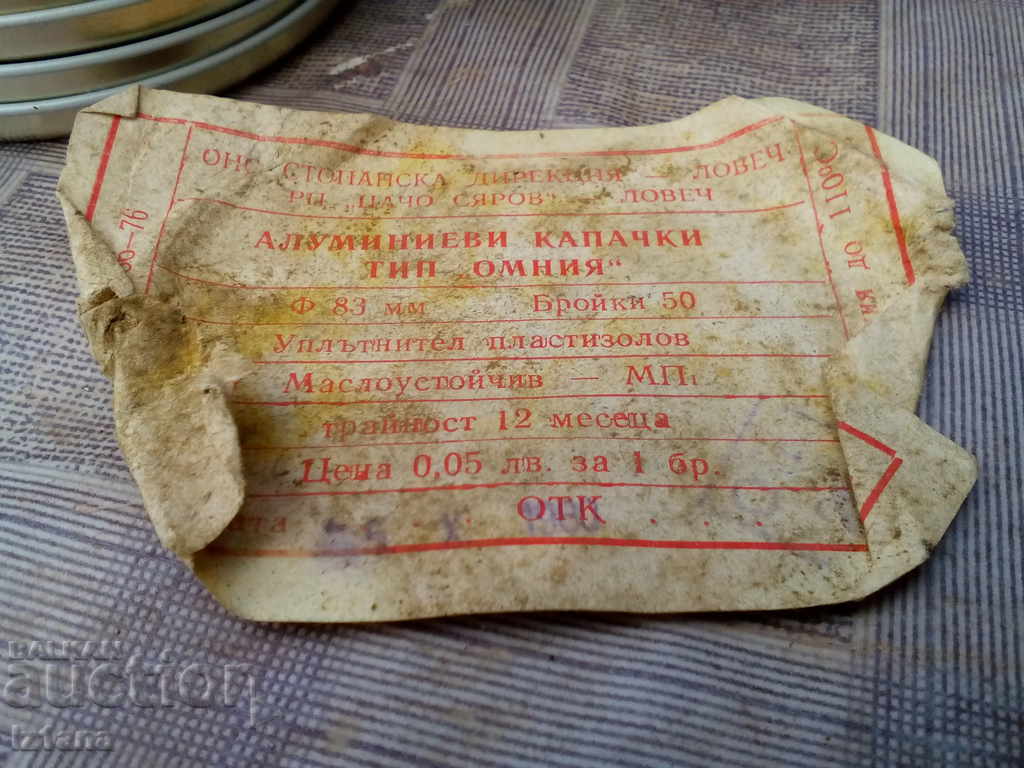 ОНС СТОПАНСКА ДИРЕКЦИЯ — ЛОВЕЧ
РП „ЦАЧО СЯРОВ“ — ЛОВЕЧ
АЛУМИНИЕВИ КАПАЧКИ
ТИП „ОМНИЯ“
Ф 83 мм Бройки 50
Уплътнител пластизолов
Маслоустойчив — МП₁
трайност 12 месеца
Цена 0,05 лв. за 1 бр.
ата . . . . ОТК . . .
0—76
ки до 110°C
BALKAN
auction
iztana